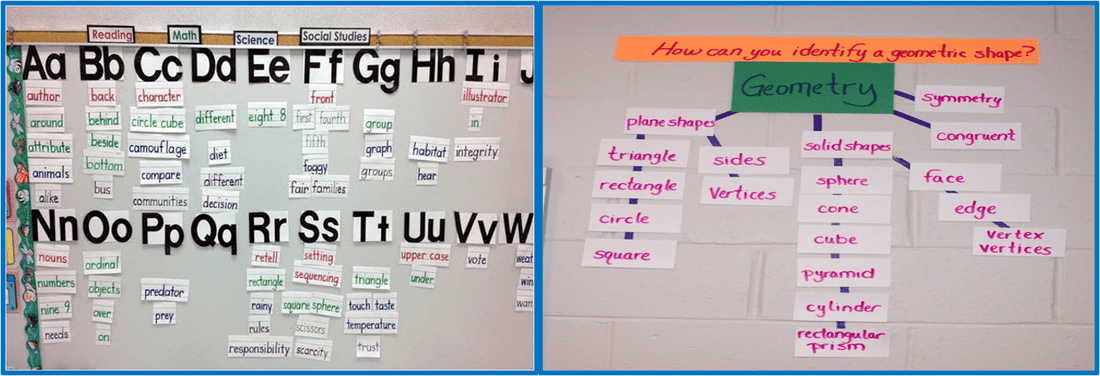 Reading Math Science Social Studies
Aa Bb Cc Dd Ee Ff Gg Hh Ii J
author back character front illustrator
around behind circle cube different eight 8 first fourth group in
attribute beside camouflage diet fifth graph habitat integrity
animals bottom compare different foggy groups hear
alike bus communities decision fair families
Nn Oo Pp Qq Rr Ss Tt Uu Vv W
nouns ordinal retell setting upper case vote weat
numbers objects predator rectangle sequencing triangle under win
nine 9 over prey rainy square sphere touch taste wan
needs on rules scissors temperature
responsibility scarcity trust
How can you identify a geometric shape?
Geometry
symmetry
congruent
plane shapes
triangle
rectangle
circle
square
sides
vertices
solid shapes
sphere
cone
cube
pyramid
cylinder
rectangular
prism
face
edge
vertex
vertices